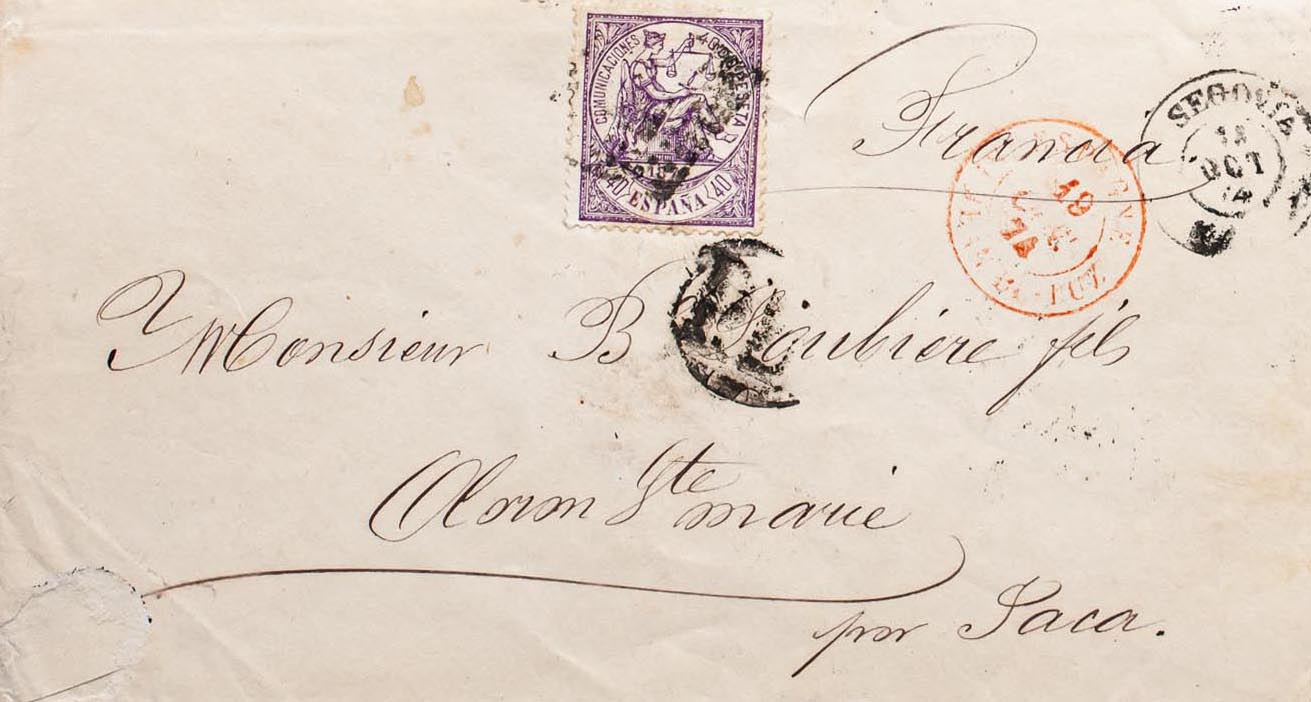 COMUNICACIONES 40 C. DE PESETA
40 ESPAÑA 40
Francia
SEGOVIA
13
OCT
74
ESPAGNE
19
74
LUZ
Monsieur B Loubière fils
Oloron Ste marie
por Jaca.